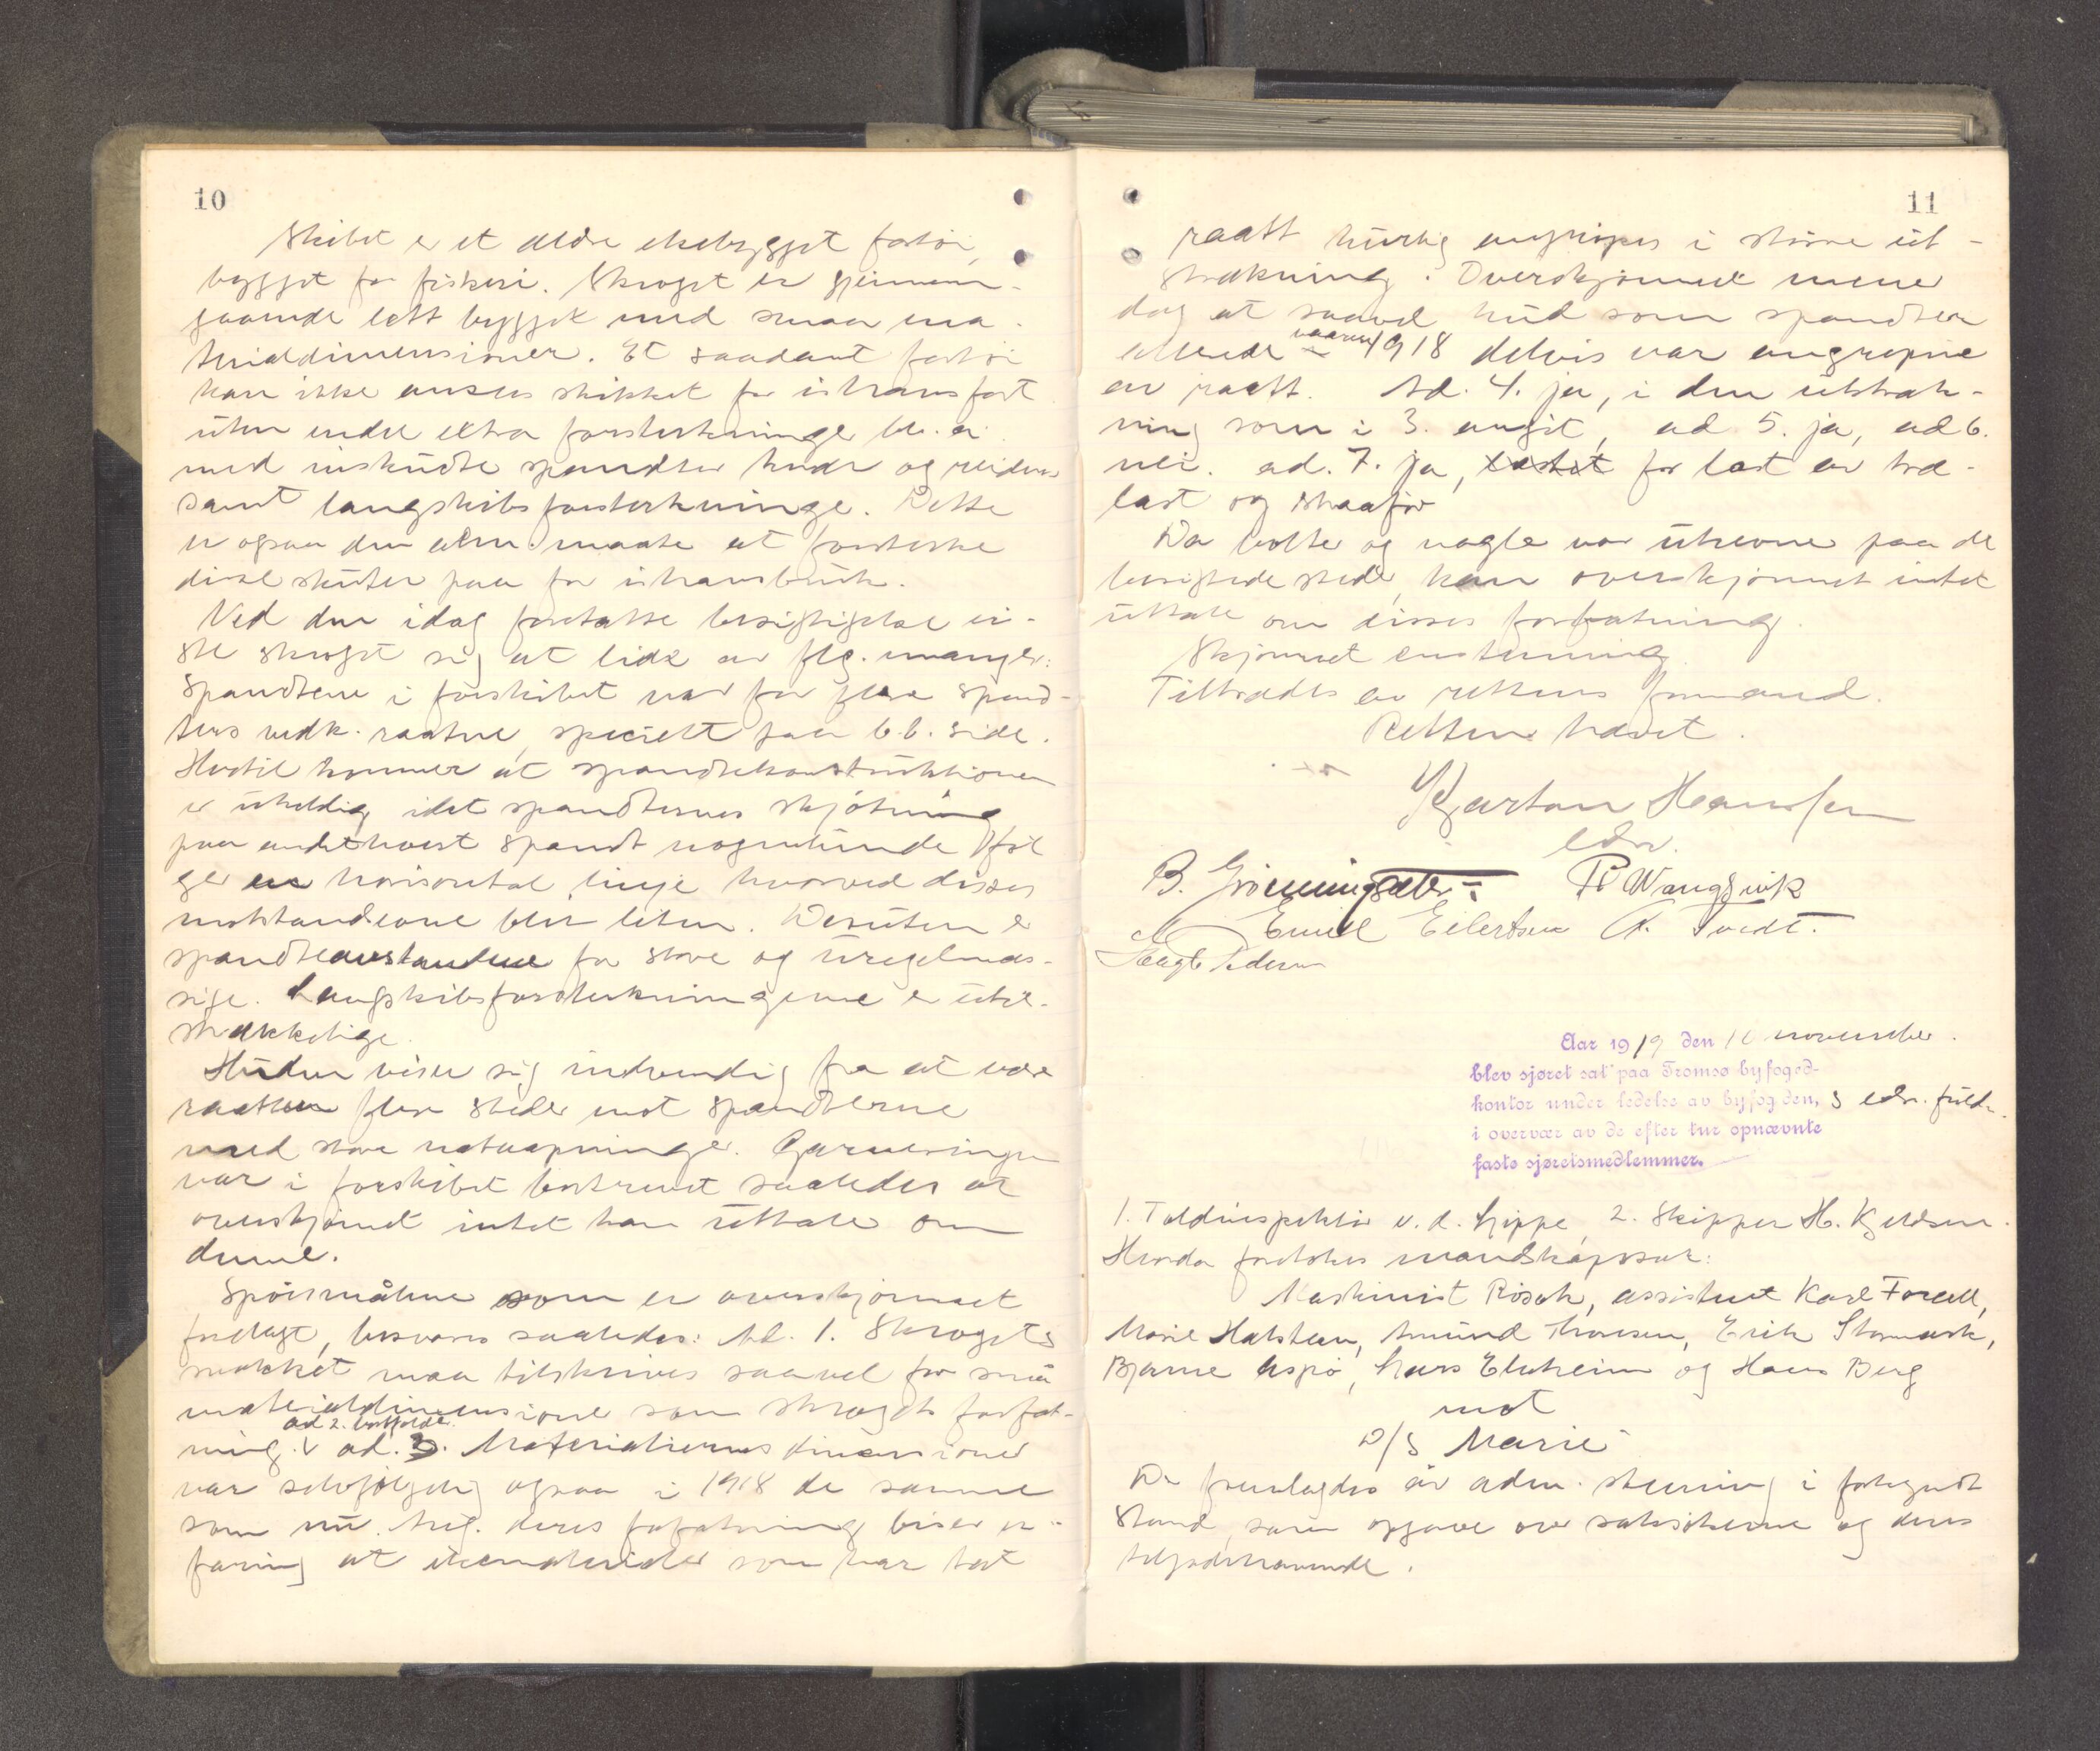 10
Skibet er et ældre ekebygget fartøi,
bygget for fiskeri. Skroget er gjennem-
gaaende lett bygget med smaa ma-
terialdimensioner. Et saadant fartøi
kan ikke ansees skikket for ishavsfart
uten endel extra forsterkninger bl. a.
med inskudte spandter huder og
samt langskibsforsterkninger. Dette
er ogsaa den alm. maate at forsterke
disse skuter paa for ishavsbruk.
Ved den idag foretatte besigtigelse vi-
ste skroget sig at lide av flg. mangler:
Spandtene i forskibet var for flere spand-
ters vedk. raatne, specielt paa b.b. side.
Hertil kommer at spandtekonstruktionen
er uheldig idet spandternes skjøtning
paa andethvert spandt nogenlunde føl-
ger en horisontal linje hvorved disses
motstandsevne blir liten. Desuten er
spandteavstandene for store og uregelmæs-
sige. Langskibsforsterkningene er util-
strækkelige.
Huden viser sig indvendig fra at være
raatten flere steder mot spandterne
med store nataapninger. Garneringen
var i forskibet bortrevet saaledes at
overskjønnet intet kan uttale om
denne.
Spørsmålene som er overskjønnet
forelagt, besvares saaledes: Ad. 1. Skrogets
svækket maa tilskrives saavel for små
materialdimensioner som skrogets forfat-
ad 2. bortfalder.
ning. v ad. 3. Materialiernes dimensioner
var selvfølgelig ogsaa i 1918 de samme
som nu. Ang. deres forfatning viser er-
faring at ekematerialer som har tat
11
raatt hurtig angripes i større ut-
strækning. Overskjønnet mener
dog at saavel hud som spandter
vaaren
allerede 1918 delvis var angrepne
av raatt. Ad. 4. ja, i den utstræk-
ning som i 3. angit, ad 5. ja, ad 6.
nei. ad. 7. ja, for last av træ-
last og
Da bolter og nagle var utrevne paa de
besigtede steder, kan overskjønnet intet
uttale om disses forfatning.
Skjønnet enstemmig.
Tiltrædes av rettens formand.
Retten hævet.
Kjartan Hansen
edsv.
B. Grønningsæter P. Wangsvik
Emil Eilertsen A. Tvedt.
Pedersen
Aar 1919 den november.
blev sjøret sat paa Tromsø byfoged-
kontor under ledelse av byfogden, s edsv. fuldm.
i overvær av de efter tur opnævnte
faste sjøretsmedlemmer.
1. Toldinspektør v. d. Lippe, 2. Skipper H. Kjeldsen.
Hvorda foretokes mandskapssak:
Maskinist Rösok, assistent Karl Forcell,
Marie Halstein, Amund Thoresen, Erik Stormark,
Bjarne Aspø, Lars Elvheim og Hans Berg
mot
D/S Marie
Der fremlagdes av adm. stevning i forkyndt
stand, samt opgave over saksøkerne og deres
tilgodehavende.